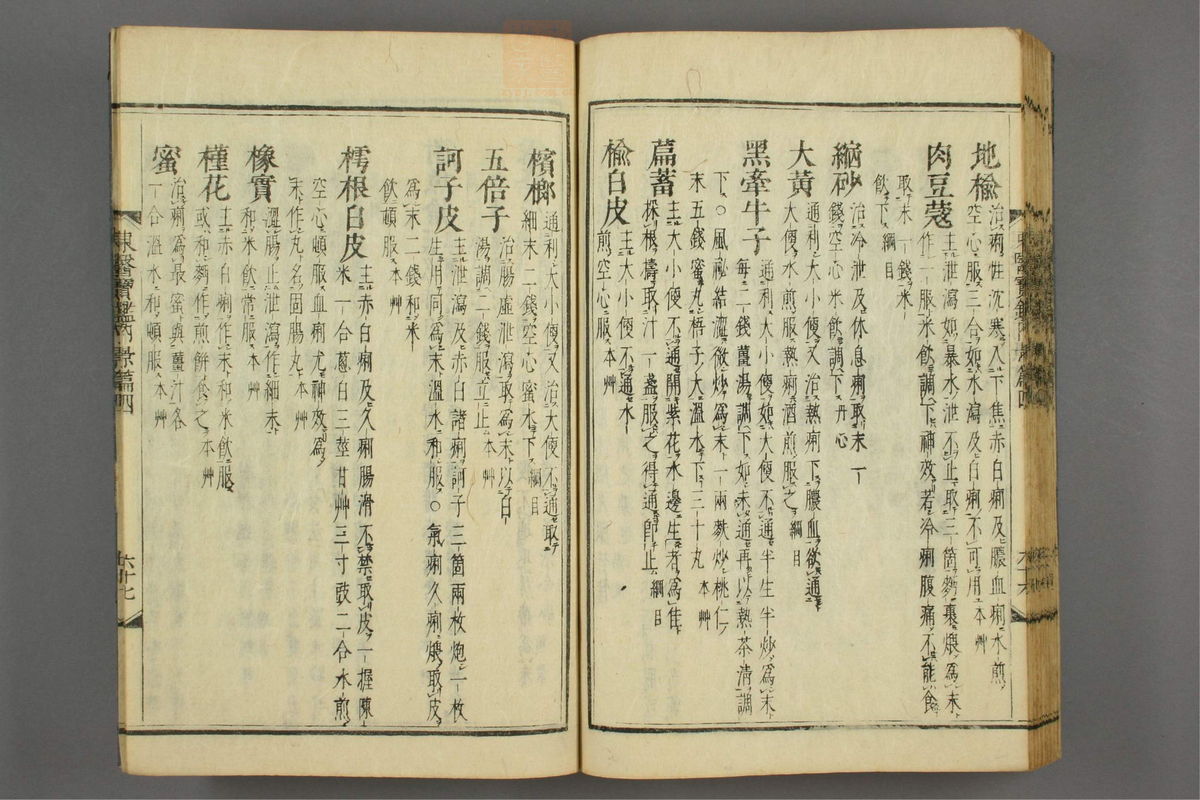 地楡治痢性沈寒入下焦赤白痢及膿血痢水煎
空心服三合如水瀉及白痢不可用本艸
肉豆蔲主泄瀉如暴水泄不止取三箇麪裹煨爲末
作一服米飮調下神效若冷痢腹痛不能食
取末一錢米
飮下綱目
硇砂治冷泄及休息痢取末一
錢空心米飮調下丹心
大黃通利大小便又治熱痢下膿血欲通
大便水煎服熱痢酒煎服之綱目
黑牽牛子通利大小便如大便不通半生半炒爲末
每二錢薑湯調下如未通再以熱茶淸調
下○風祕結澀微炒爲末一兩麩炒桃仁
末五錢蜜丸梧子大溫水下三十丸本艸
萹蓄主大小便不通開紫花水邊生者爲佳
採根擣取汁一盞服之得通卽止綱目
楡白皮主大小便不通水
煎空心服本艸
六十六
檳榔通利大小便又治大便不通取
細末二錢空心蜜水下綱目
五倍子治腸虛泄瀉取爲末以白
湯調二錢服立止本艸
訶子皮主泄瀉及赤白諸痢訶子三箇兩枚炮一枚
生用同爲末溫水和服○氣痢久痢煨取皮
爲末二錢和米
飮頓服本艸
樗根白皮主赤白痢及久痢腸滑不禁取皮一握陳
米一合葱白三莖甘艸三寸豉二合水煎
空心頓服血痢尤神效爲
末作丸名固腸丸本艸
橡實澀腸止泄瀉作細末
和米飮常服本艸
槿花主赤白痢作末和米飮服
或和麪作煎餠食之本艸
蜜治痢爲最蜜與薑汁各
一合溫水和頓服本艸
東醫寶鑑內景篇四
六十七